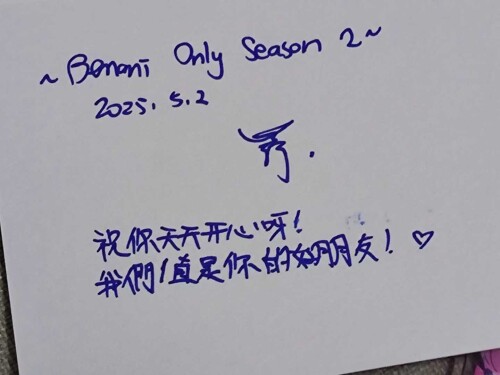 ~ Bonani Only Season 2 ~
2025. 5.2
祝你天天开心呀!
我們!直是你的好朋友! ♡